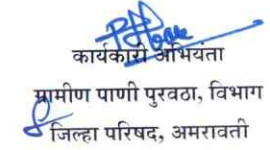 कार्यकारी अभियंता
ग्रामीण पाणी पुरवठा, विभाग
जिल्हा परिषद, अमरावती